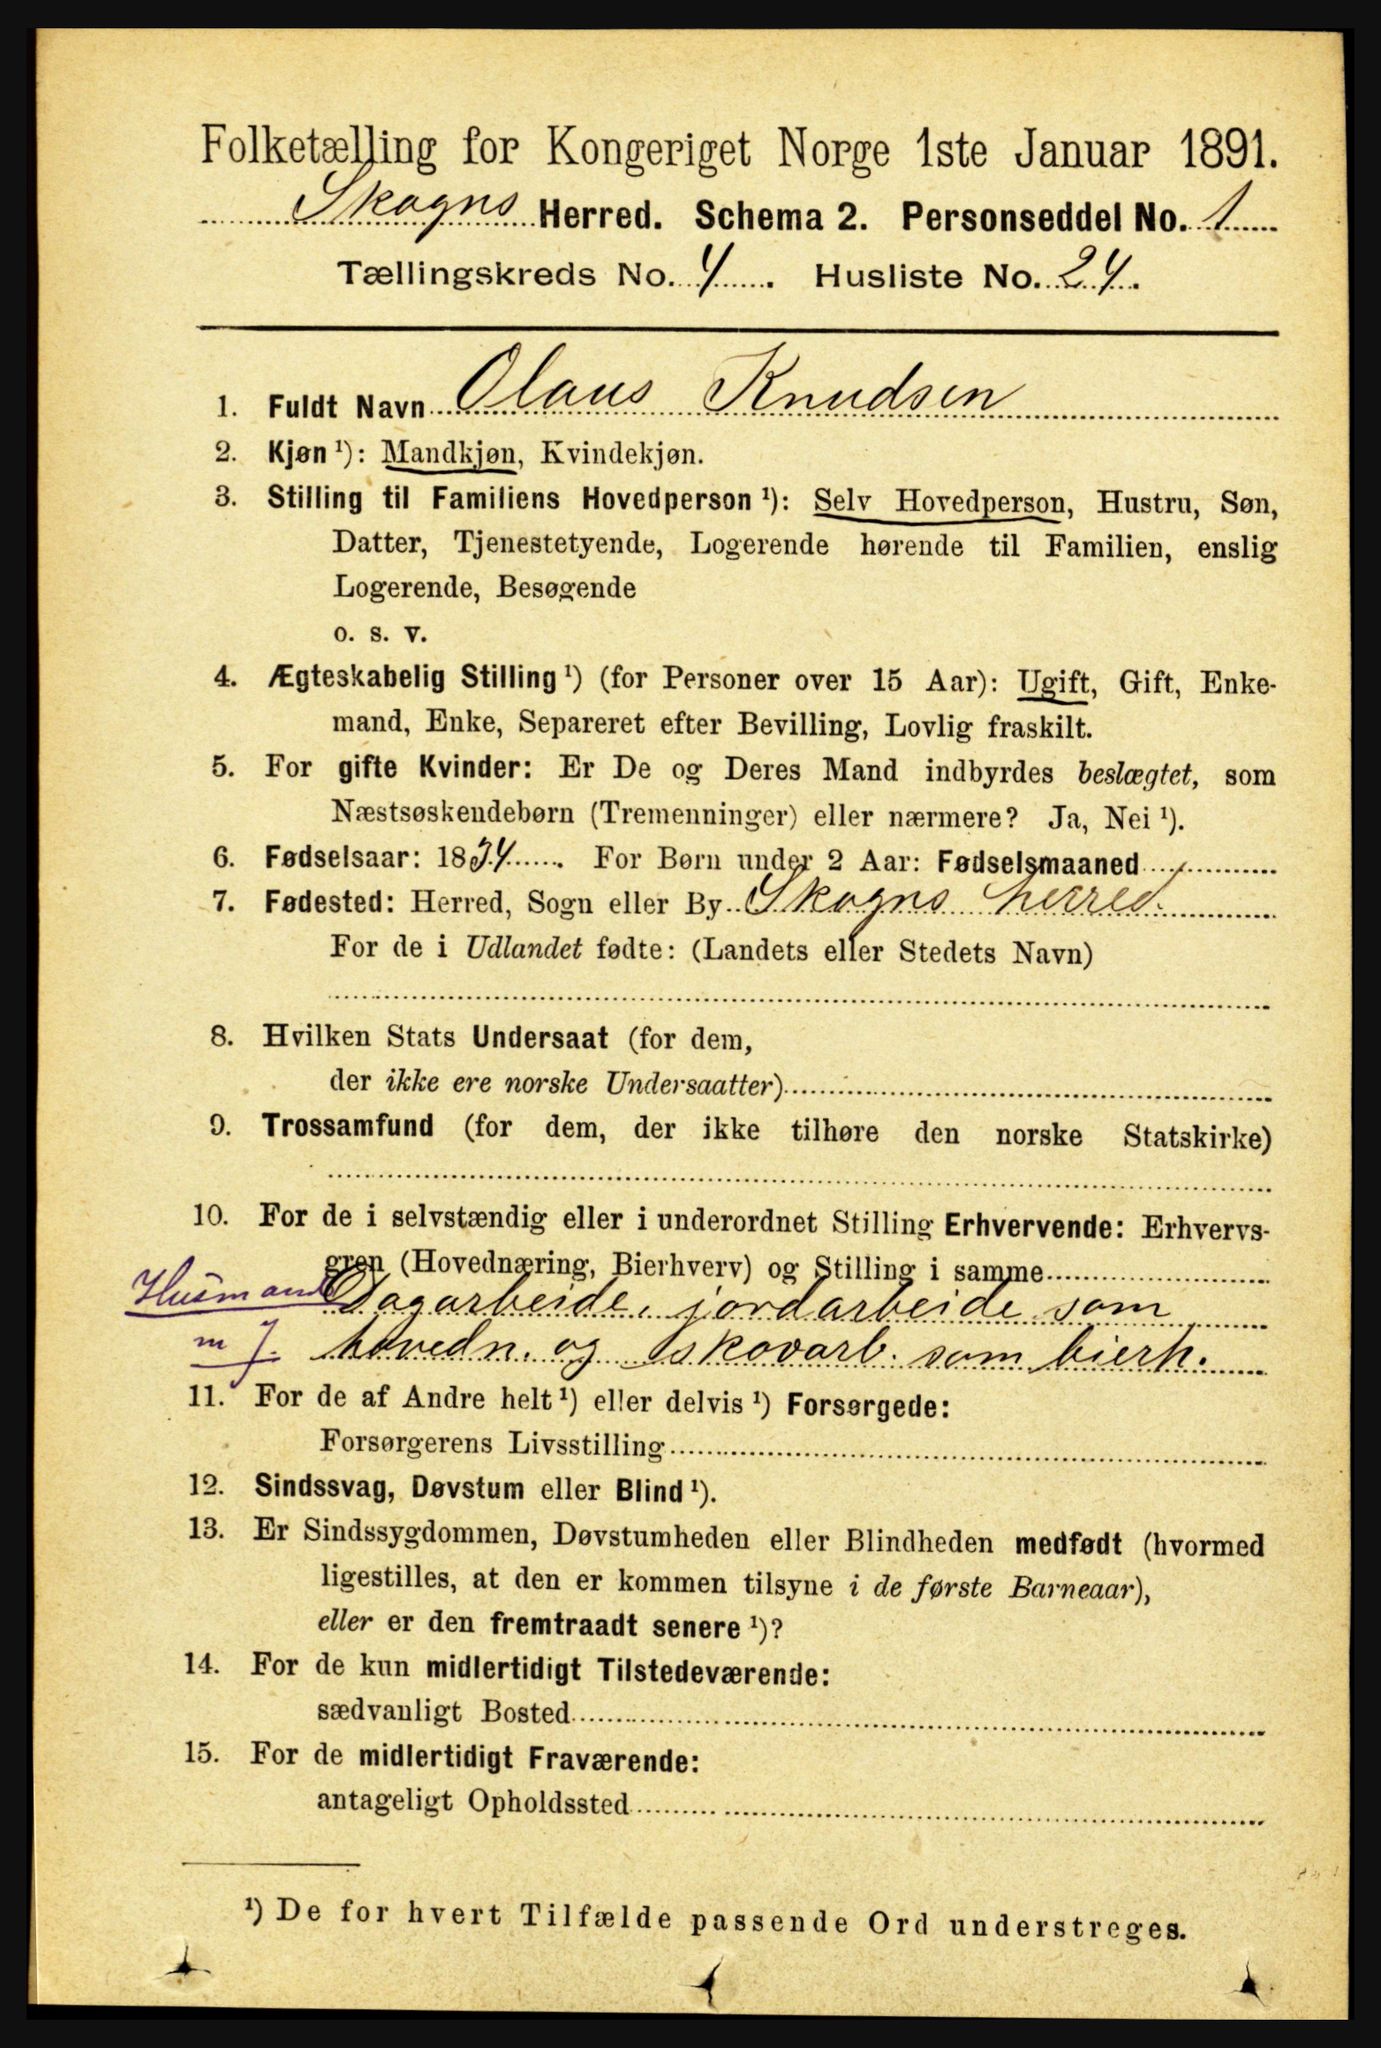 Folketælling for Kongeriget Norge 1ste Januar 1891.
Skogns Herred. Schema 2. Personseddel No. 1
Tællingskreds No. 4. Husliste No. 24.
1. Fuldt Navn Olaus Knudsen
2. Kjøn ¹): Mandkjøn, Kvindekjøn.
3. Stilling til Familiens Hovedperson ¹): Selv Hovedperson, Hustru, Søn,
Datter, Tjenestetyende, Logerende hørende til Familien, enslig
Logerende, Besøgende
o. s. v.
4. Ægteskabelig Stilling ¹) (for Personer over 15 Aar): Ugift, Gift, Enke-
mand, Enke, Separeret efter Bevilling, Lovlig fraskilt.
5. For gifte Kvinder: Er De og Deres Mand indbyrdes beslægtet, som
Næstsøskendebørn (Tremenninger) eller nærmere? Ja, Nei ¹).
6. Fødselsaar: 1834. For Børn under 2 Aar: Fødselsmaaned
7. Fødested: Herred, Sogn eller By Skogns herred.
For de i Udlandet fødte: (Landets eller Stedets Navn)
8. Hvilken Stats Undersaat (for dem,
der ikke ere norske Undersaatter)
9. Trossamfund (for dem, der ikke tilhøre den norske Statskirke)
10. For de i selvstændig eller i underordnet Stilling Erhvervende: Erhvervs-
gren (Hovednæring, Bierhverv) og Stilling i samme
Husmand Dagarbeide, jordarbeide som
m J. hovedn. og skovarb. som bierh.
11. For de af Andre helt ¹) eller delvis ¹) Forsørgede:
Forsørgerens Livsstilling
12. Sindssvag, Døvstum eller Blind ¹).
13. Er Sindssygdommen, Døvstumheden eller Blindheden medfødt (hvormed
ligestilles, at den er kommen tilsyne i de første Barneaar),
eller er den fremtraadt senere ¹)?
14. For de kun midlertidigt Tilstedeværende:
sædvanligt Bosted
15. For de midlertidigt Fraværende:
antageligt Opholdssted
¹) De for hvert Tilfælde passende Ord understreges.